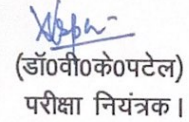 (डॉ0वी0के0पटेल)
परीक्षा नियंत्रक।